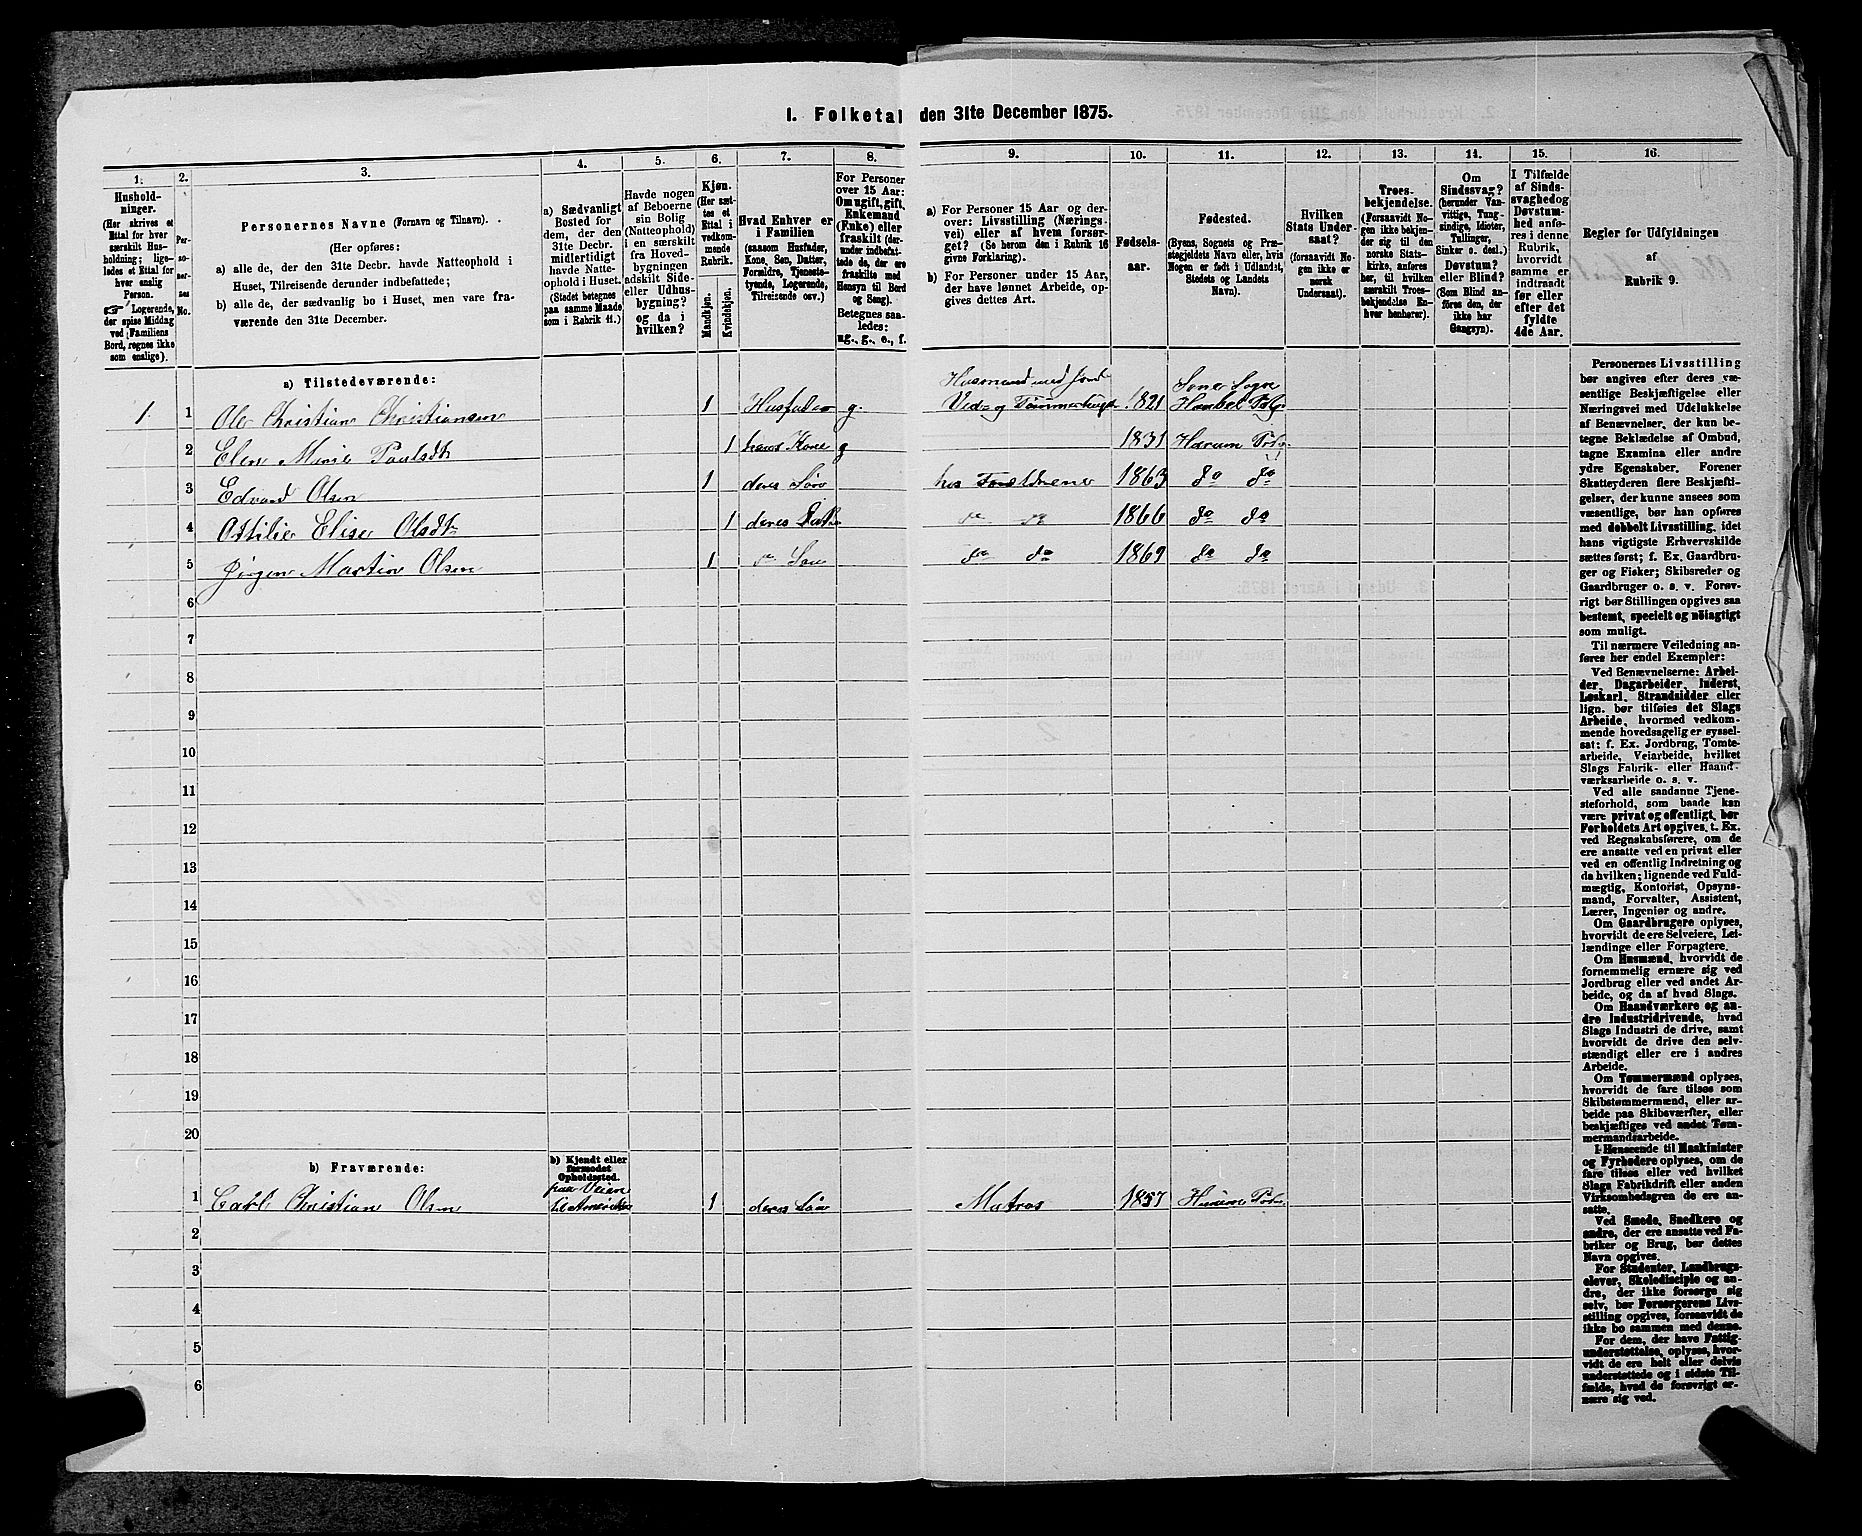 I. Folketal den 31te December 1875.
1. 2. 3. 4. 5. 6. 7. 8. 9. 10. 11. 12. 13. 14. 15. 16.
Hushold-
ninger.
(Her skrives et
Ettal for hver
særskilt Hus-
holdning; lige-
ledes et Ettal for
hver enslig
Person.
☞ Logerende,
der spise Middag
ved Familiens
Bord, regnes ikke
som enslige).
Per-
soner-
nes
No.
Personernes Navne (Fornavn og Tilnavn).
(Her opføres:
a) alle de, der den 31te Decbr. havde Natteophold i
Huset, Tilreisende derunder indbefattede;
b) alle de, der sædvanlig bo i Huset, men vare fra-
værende den 31te December.
a) Sædvanligt
Bosted for
dem, der den
31te Decbr.
midlertidigt
havde Natte-
ophold i Huset.
(Stedet betegnes
paa samme Maade
som i Rubrik 11.)
Havde nogen
af Beboerne
sin Bolig
(Natteophold)
i en særskilt
fra Hoved-
bygningen
adskilt Side-
eller Udhus-
bygning?
og da i
hvilken?
Kjøn.
(Her sæt-
tes et
Ettal i
vedkom-
mende
Rubrik.
Mandkjøn.
Kvindekjøn.
Hvad Enhver er
i Familien
(saasom Husfader,
Kone, Søn, Datter,
Forældre, Tjeneste-
tyende, Logerende,
Tilreisende osv.)
For Personer
over 15 Aar:
Om ugift, gift,
Enkemand
(Enke) eller
fraskilt (der-
under indbefat-
tede de, der ere
fraskilte med
Hensyn til Bord
og Seng).
Betegnes saa-
ledes:
ug., g., e., f.
a) For Personer 15 Aar og der-
over: Livsstilling (Nærings-
vei) eller af hvem forsør-
get? (Se herom den i Rubrik 16
givne Forklaring).
b) For Personer under 15 Aar,
der have lønnet Arbeide, op-
gives dettes Art.
Fødsels-
aar.
Fødested.
(Byens, Sognets og Præ-
stegjeldets Navn, eller, hvis
Nogen er født i Udlandet,
Stedets og Landets
Navn).
Hvilken
Stats Under-
saat?
(forsaavidt No-
gen ikke er
norsk
Undersaat).
Troes-
bekjendelse.
(Forsaavidt No-
gen ikke bekjen-
der sig til den
norske Stats-
kirke, anføres
her, til hvilken
særskilt Troes-
bekjendelse En-
hver henhører).
Om
Sindssvag?
(herunder Van-
vittige, Tung-
sindige, Idioter,
Tullinger,
Sinker o. desl.)
Døvstum?
eller Blind?
(Som Blind an-
føres den, der
ikke har
Gangsyn).
I Tilfælde
af Sinds-
svaghed og
Døvstum-
hed anfø-
res i denne
Rubrik,
hvorvidt
samme er
indtraadt
før eller
efter det
fyldte
4de Aar.
Regler for Udfyldningen
af
Rubrik 9.
a) Tilstedeværende:
1 1 Ole Christian Christiansen 1 Husfader g. Husmand med Jord Ved- og Tømmerhugst 1821 Sogn
2 Elen Marie Paulsdt 1 hans Kone g 1831 Hurum
3 Edvard Olsen 1 deres Søn hos Forældrene 1863 do do
4 Ottilie Elise Olsdt 1 deres do do 1866 do do
5 Jørgen Martin Olsen 1 do Søn do do 1869 do do
6
7
8
9
10
11
12
13
14
15
16
17
18
19
20
b) Fraværende:
b) Kjendt eller
formodet
Opholdssted.
1 Carl Christian Olsen paa Veien til Amerika 1 deres Søn Matros 1857 Hurum
2
3
4
5
6
Personernes Livsstilling
bør angives efter deres væ-
sentlige Beskjæftigelse eller
Næringsvei med Udelukkelse
af Benævnelser, der kun be-
tegne Beklædelse af Ombud,
tagne Examina eller andre
ydre Egenskaber. Forener
Skatteyderen flere Beskjæfti-
gelser, der kunne ansees som
væsentlige, bør han opføres
med dobbelt Livsstilling, idet
hans vigtigste Erhvervskilde
sættes først; f. Ex. Gaardbru-
ger og Fisker; Skibsreder og
Gaardbruger o. s. v. Forøv-
rigt bør Stillingen opgives saa
bestemt, specielt og nøiagtigt
som muligt.
Til nærmere Veiledning an-
føres her endel Exempler:
Ved Benævnelserne: Arbei-
der, Dagarbeider, Inderst,
Løskarl, Strandsidder eller
lign. bør tilføies det Slags
Arbeide, hvormed vedkom-
mende hovedsagelig er syssel-
sat; f. Ex. Jordbrug, Tomte-
arbeide, Veiarbeide, hvilket
Slags Fabrik- eller Haand-
værksarbeide o. s. v.
Ved alle saadanne Tjene-
steforhold, som baade kan
være privat og offentligt, bør
Forholdets Art opgives, t. Ex.
ved Regnskabsførere, om de
ere ansatte ved en privat eller
ved en offentlig Indretning og
da hvilken; lignende ved Fuld-
mægtig, Kontorist, Opsyns-
mand, Forvalter, Assistent,
Lærer, Ingeniør og andre.
Om Gaardbrugere oplyses,
hvorvidt de ere Selveiere, Lei-
lændinge eller Forpagtere.
Om Husmænd, hvorvidt de
fornemmelig ernære sig ved
Jordbrug eller ved andet Ar-
beide, og da af hvad Slags.
Om Haandværkere og an-
dre Industridrivende, hvad
Slags Industri de drive, samt
hvorvidt de drive den selv-
stændigt eller ere i andres
Arbeide.
Om Tømmermænd oplyses,
hvorvidt de fare tilsøs som
Skibstømmermænd, eller ar-
beide paa Skibsværfter, eller
beskjæftiges ved andet Tøm-
mermandsarbeide.
I Henseende til Maskinister
og Fyrbødere oplyses, om de
fare tilsøs eller ved hvilket
Slags Fabrikdrift eller anden
Virksomhedsgren de ere an-
satte.
Ved Smede, Snedkere og
andre, der ere ansatte ved Fa-
briker og Brug, bør dettes
Navn opgives.
For Studenter, Landbrugs-
elever, Skoledisciple og an-
dre, der ikke forsørge sig
selv, bør Forsørgerens Livs-
stilling opgives, forsaavidt de
ikke bo sammen med denne.
For dem, der have Fattig-
understøttelse, oplyses, hvor-
vidt de ere helt eller delvis
understøttede og i sidste Til-
fælde, hvad de forøvrigt er-
nære sig ved.